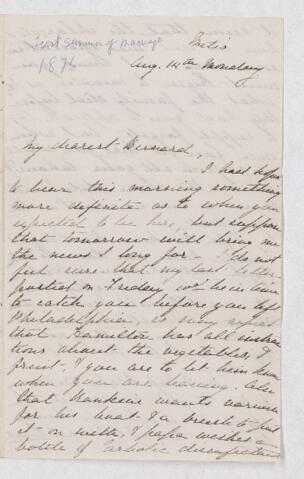 First summer of marriage
1876
Metis
Aug. 14th Monday
My dearest Bernard,
I had hoped
to hear this morning something
more definite as to when you
expected to be here, but suppose
that tomorrow will bring me
the news I long for. I do not
feel sure that my last letter
posted on Friday wd be in time
to catch you before you left
Philadelphia, so may repeat
that Hamilton has all instruc
tions about the vegetables, &
fruit, & you are to let him know
when you are leaving. Also
that Manksie wants varnish
for his boat & a brush to put
it on with, & papa wishes a
bottle of Carbolic disinfectant